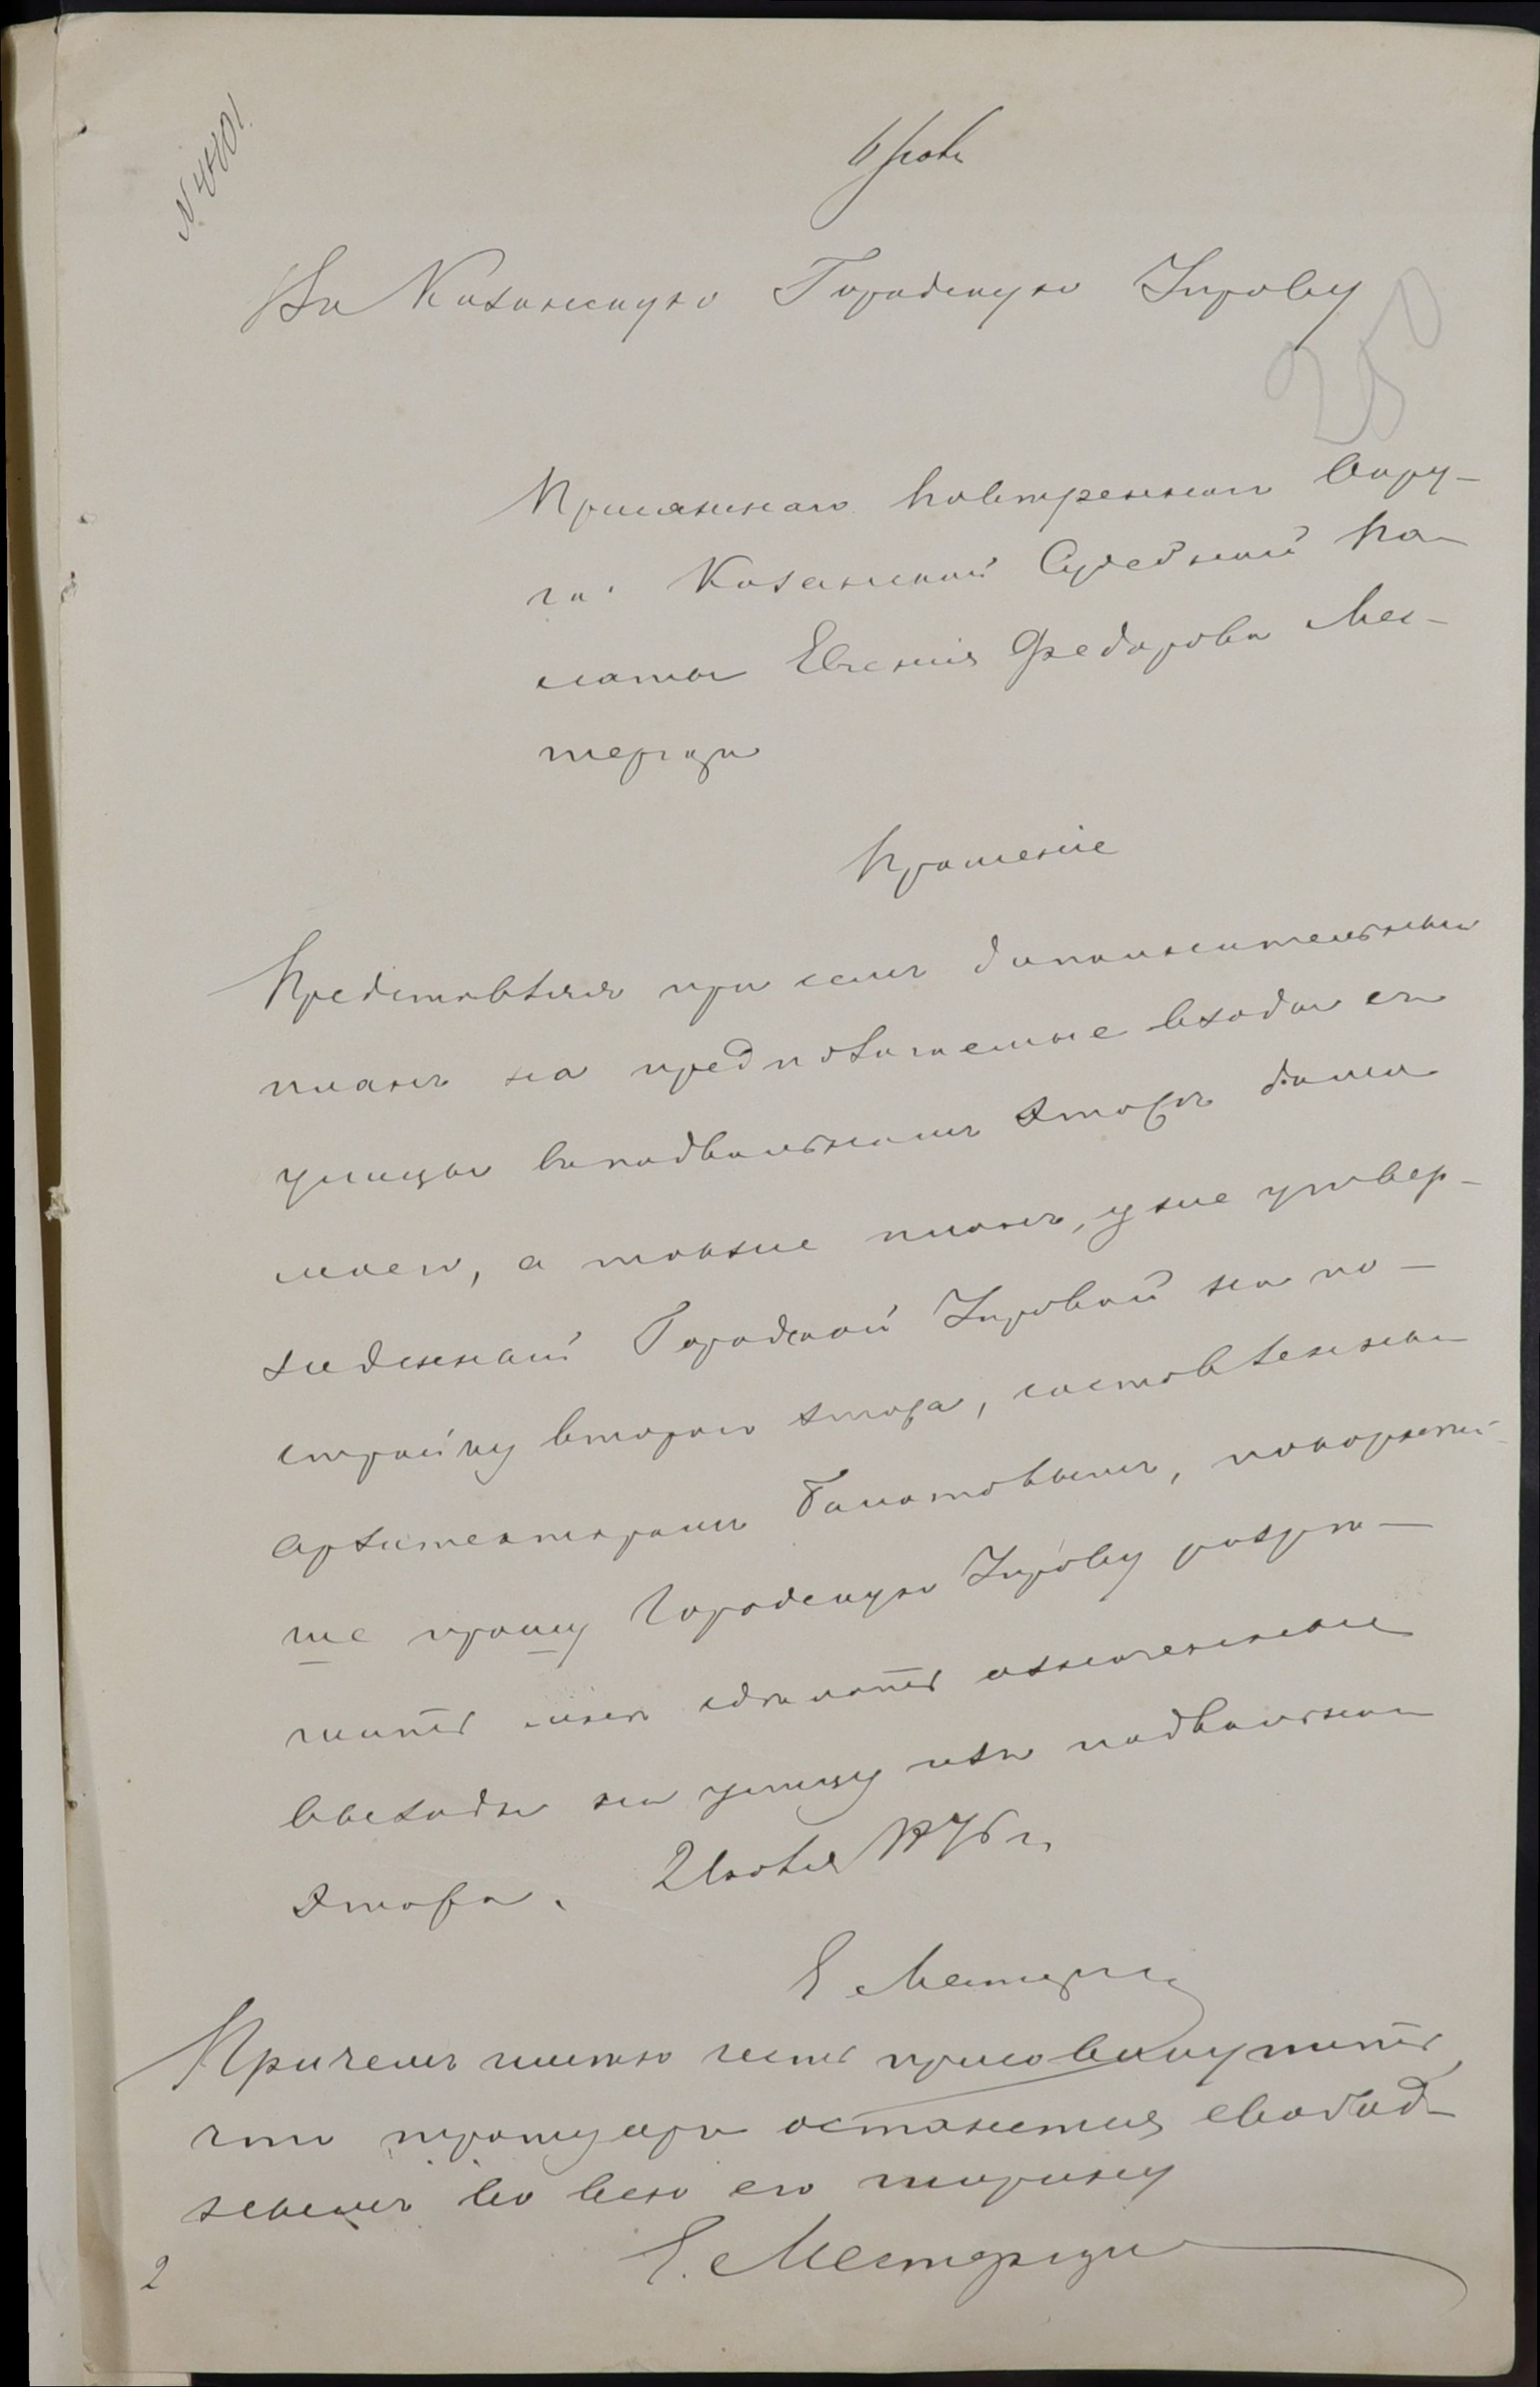 N 4401.
6 Іюля
250
Въ Казанскую Городскую Управу
Присяжнаго повѣреннаго Окру-
га Казанской Судебной Па-
латы Евгенія Федорова Мес-
терици
Прошеніе
Представляя при семъ дополнительный
планъ на предполагаемые входы съ
улицы въ подвальномъ этажѣ дома
моего, а также планъ, уже утвер-
жденный Городской Управой на по-
стройку втораго этажа, составленный
архитекторомъ, покорнѣй-
ше прошу Городскую Управу разрѣ-
шить мнѣ сдѣлать означенные
выходы на улицу изъ подвальнаго
этажа. Іюля 1876 г.
Е Местериц
Причемъ имѣю честь присовокупить,
что тротуаръ останется свобод-
нымъ во всю его ширину
Е. Местерици
2